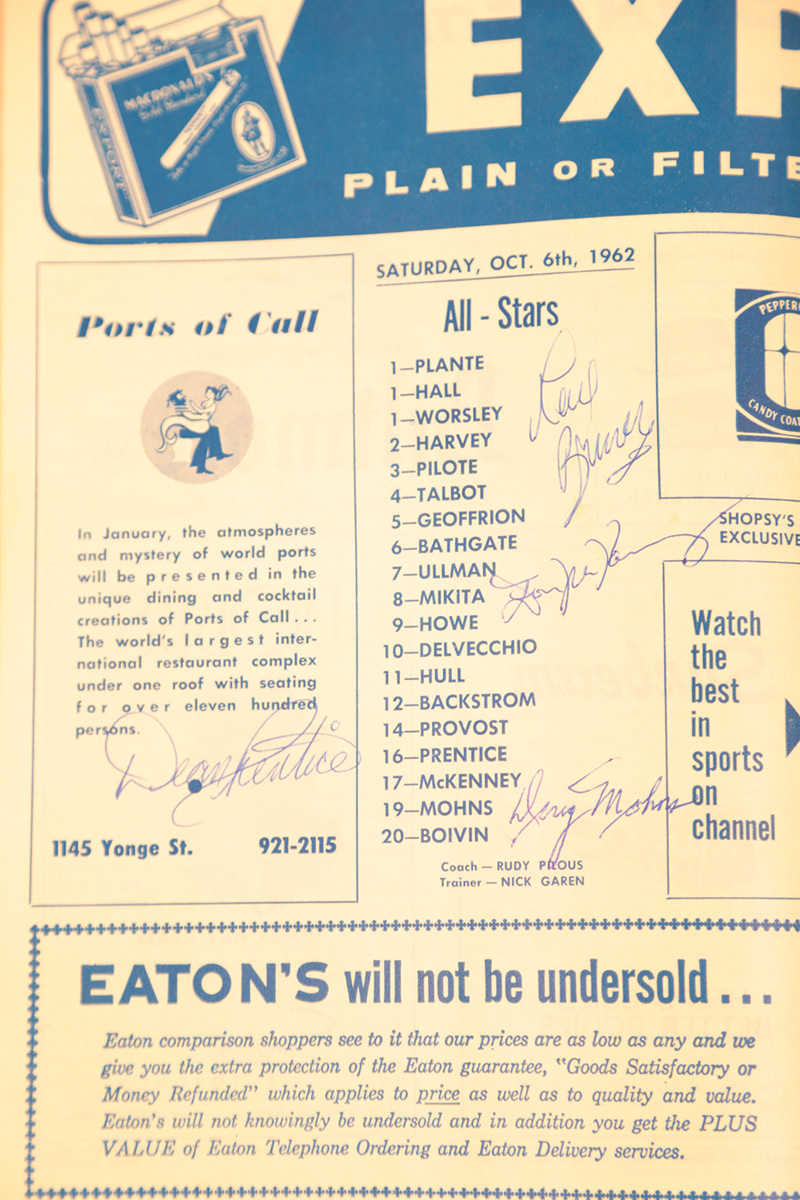 MACDONALD'S
EXPORT
EXP
PLAIN OR FILTE
Ports of Call
In January, the atmospheres
and mystery of world ports
will be presented in the
unique dining and cocktail
creations of Ports of Call...
The world's largest inter-
national restaurant complex
under one roof with seating
for over eleven hundred
persons.
Dean Prentice
1145 Yonge St. 921-2115
SATURDAY, OCT. 6th, 1962
All - Stars
1—PLANTE
1—HALL
1—WORSLEY
2—HARVEY
3—PILOTE
4—TALBOT
5—GEOFFRION
6—BATHGATE
7—ULLMAN
8—MIKITA
9—HOWE
10—DELVECCHIO
11—HULL
12—BACKSTROM
14—PROVOST
16—PRENTICE
17—McKENNEY
19—MOHNS
Doug Mohns
20—BOIVIN
Coach — RUDY PILOUS
Trainer — NICK GAREN
PEPPER
CANDY COAT
SHOPSY'S
EXCLUSIVE
Watch
the
best
in
sports
on
channel
EATON'S will not be undersold...
Eaton comparison shoppers see to it that our prices are as low as any and we
give you the extra protection of the Eaton guarantee, "Goods Satisfactory or
Money Refunded" which applies to price as well as to quality and value.
Eaton's will not knowingly be undersold and in addition you get the PLUS
VALUE of Eaton Telephone Ordering and Eaton Delivery services.